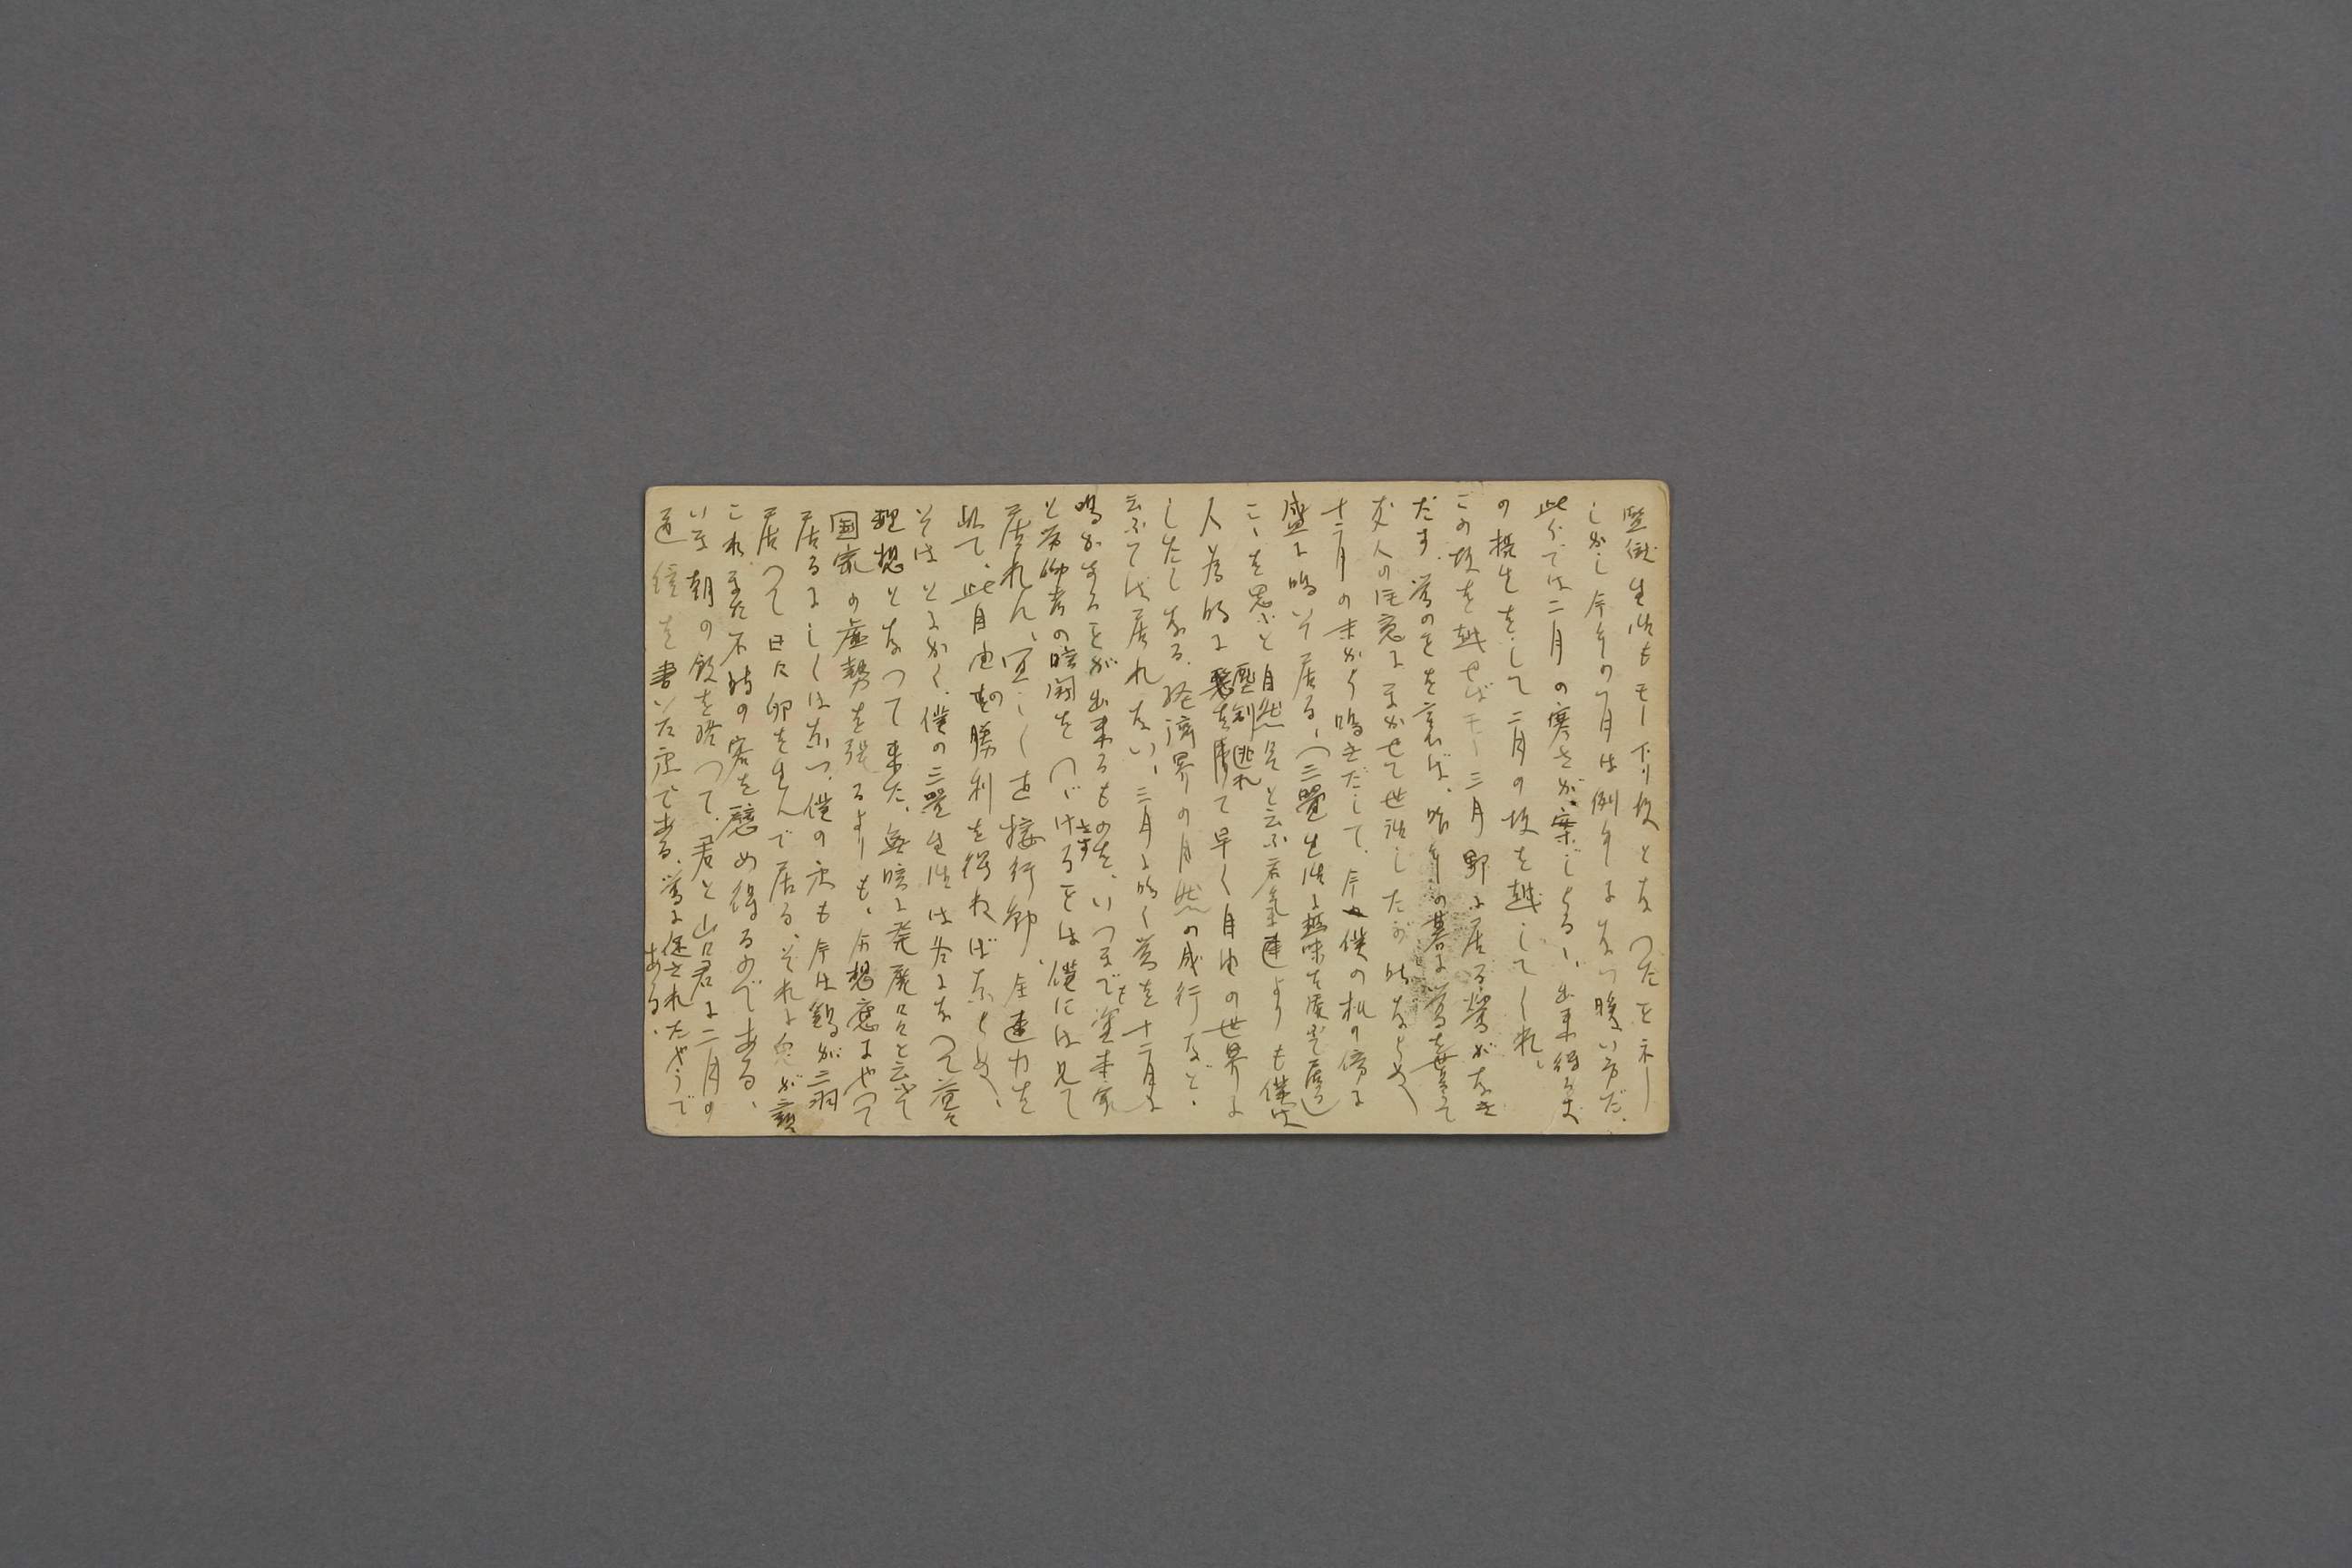 監獄生活もモー下り坂となつたネー
しかし今年の一月は例年になつ暖い方だ、
此分では二月の寒さが案じらるゝ、出来得る丈
の摂生をして二月の坂を越してくれ、
この坂を越せばモー三月野に居る鶯がなき
だす、鶯のを言へば、昨年の暮に鶯を貰つて
友人の注意にまかせて世話したが
十二月の末から鳴きだして、今僕の机の傍に
盛に鳴いて居る、(三畳生活に趣味を添て居る)
こゝを思ふと自然々々と云ふ呑気連よりも僕は
人為的に圧制を逃れて早く自由の世界に
したくなる、経済界の自然の成行など、
云ふては居れない、三月に鳴く鶯を十二月に
鳴かすることが出来るものを、いつまでも資本家
と労働者の暗闘をつゞけさすことは僕には見て
居れん、宜しく直接行動、全速力を
以て、此自由の勝利を得ねばならぬ、
そはとにかく、僕の三畳生活は今になつて益々
理想となつて来た、無暗に発展々々と云ふて
国家の虚勢を張るよりも、分相応にやつて
居るにしくはなし、僕の家も今は鶏が二羽
居つて日に卵を生んで居る、それに兎が二疋
これまた不時の客を慰め得るのである、
いま朝の飯を終つて、君と山口君に二月の
通信を書いた処である、鶯に促されたやうで
ある、